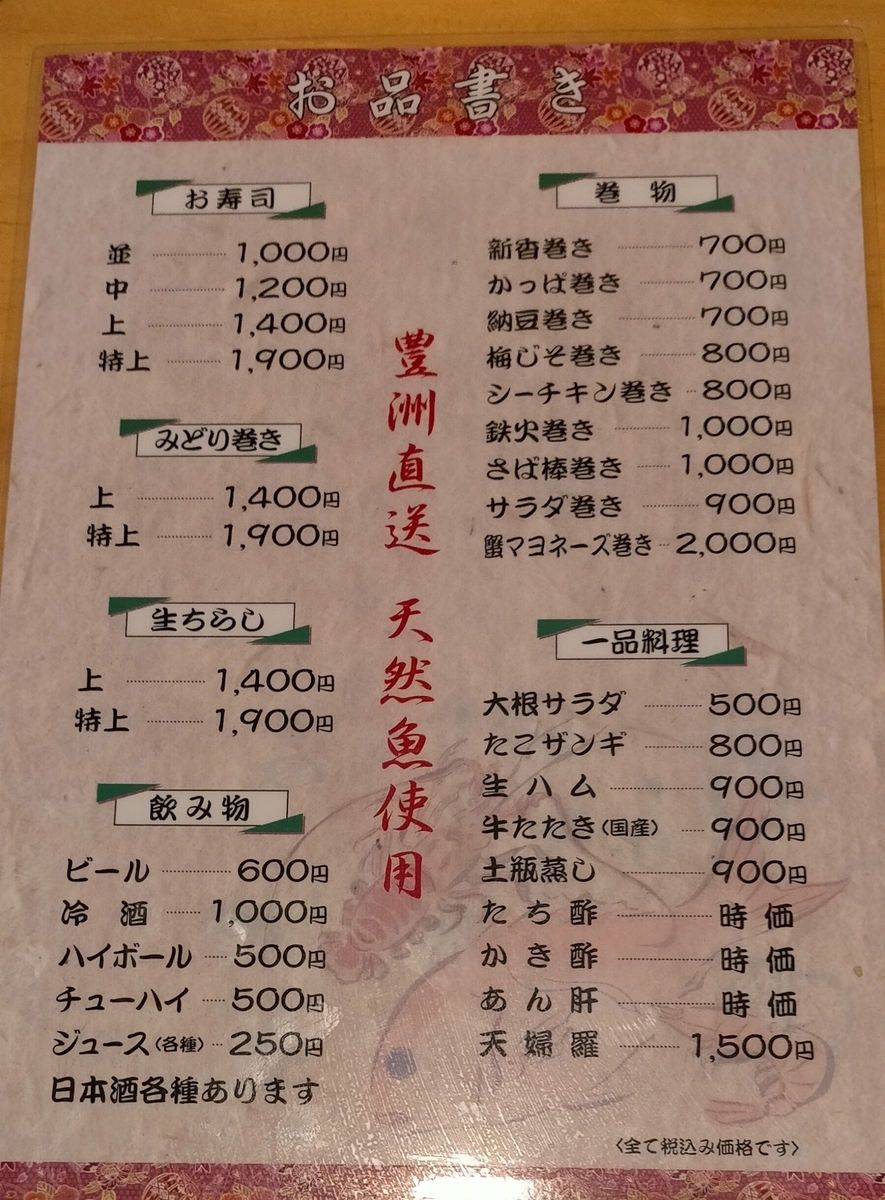 お品書き
お寿司
並 1,000円
中 1,200円
上 1,400円
特上 1,900円
みどり巻き
上 1,400円
特上 1,900円
生ちらし
上 1,400円
特上 1,900円
飲み物
ビール 600円
冷酒 1,000円
ハイボール 500円
チューハイ 500円
ジュース(各種) 250円
日本酒各種あります
豊洲直送 天然魚使用
巻物
新香巻き 700円
かっぱ巻き 700円
納豆巻き 700円
梅じそ巻き 800円
シーチキン巻き 800円
鉄火巻き 1,000円
さば棒巻き 1,000円
サラダ巻き 900円
蟹マヨネーズ巻き 2,000円
一品料理
大根サラダ 500円
たこザンギ 800円
生ハム 900円
牛たたき(国産) 900円
土瓶蒸し 900円
たち酢 時価
かき酢 時価
あん肝 時価
天婦羅 1,500円
〈全て税込み価格です〉